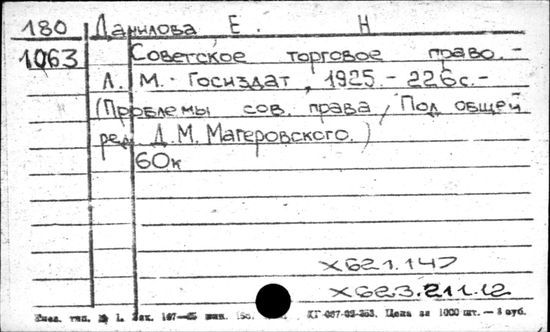 180 Данилова Е. Н
1063 Советское торговое право.-
Л. М.- Госиздат, 1925.- 226с.-
(Проблемы сов. права, Под общей
ред. Д.М. Магеровского.)
60к
X621.147
X623.211.12
тип. № 1. Зак. 167— КГ-087-02-263. Цена за 1000 шт.— 3 руб.